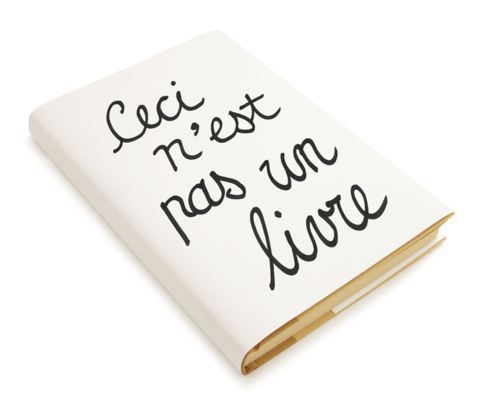 Ceci
n'est
pas un
livre